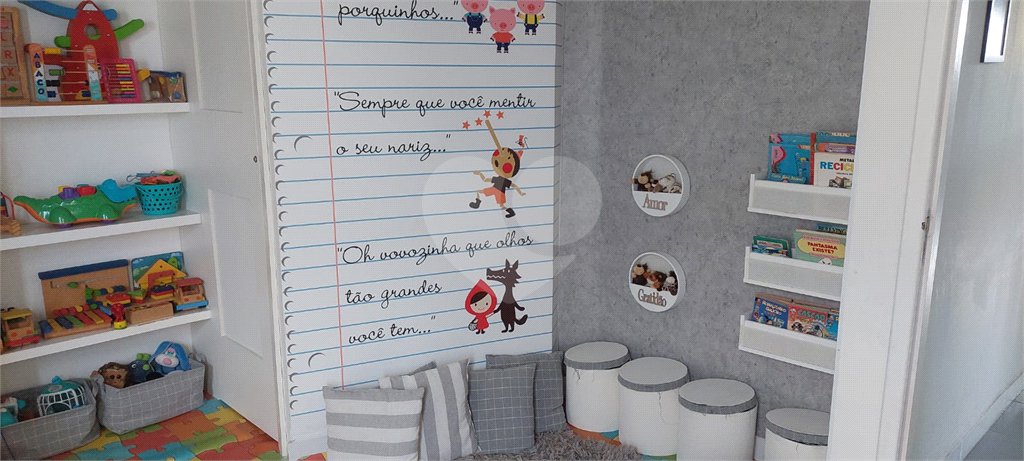 porquinhos..."
"Sempre que você mentir
o seu nariz..."
"Oh vovozinha que olhos
tão grandes
você tem..."
Amor
Gratidão
ABACO
METAL
RECIC
FANTASMA É